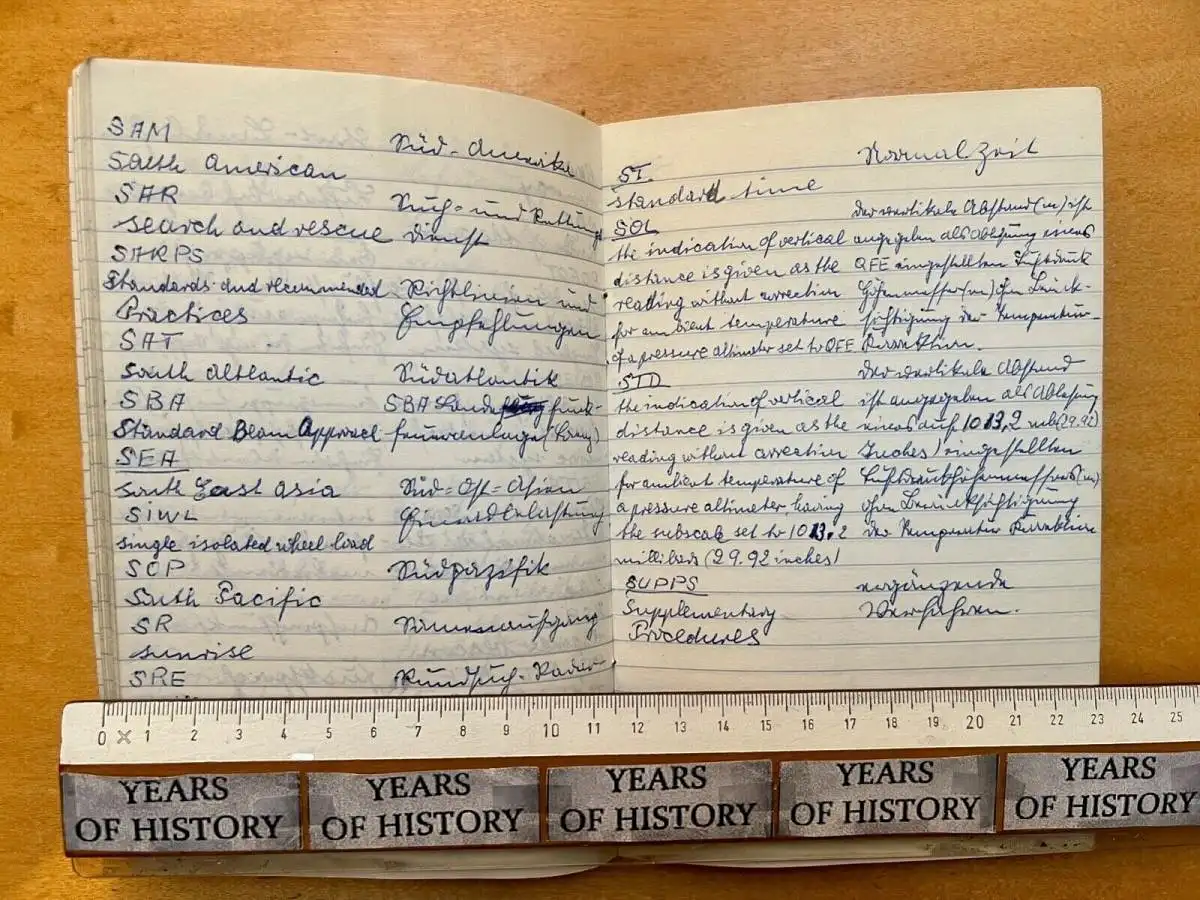 SAM
Süd-Amerika
South American
SAR
Such- und Rettungs
search and rescue dienst
SARPS
Standards and recommended Richtlinien und
Practices Empfehlungen
SAT
South Altlantic Südatlantik
SBA SBA Lande funk-
Standard Beam Approach
SEA
South East Asia Süd=Ost=Asien
SIWL Einradbelastung
single isolated wheel load
SOP Südpazifik
South Pacific
SR Sonnenaufgang
sunrise
SRE Rundsuch-Radar-
Normalzeit
ST.
standard time
der vertikale Abstand (m) ist
SOL
the indication of vertical angegeben als Ablesung eines
distance is given as the QFE eingestellten Luftdruck
reading without correction Höhenmesser (m) ohne Berück-
for ambient temperature sichtigung der Temperatur-
of a pressure altimeter set to QFE Korrektion.
STD der vertikale Abstand
the indication of vertical ist angegeben als Ablesung
distance is given as the eines auf 1013,2 mb (29.92
reading without correction Inches) eingestellten
for ambient temperature of Luftdruckhöhenmessers (m)
a pressure altimeter having ohne Berücksichtigung
the subscale set to 1013,2 der Temperatur Korrektion
millibars (29.92 inches)
SUPPS ergänzende
Supplementary Verfahren.
Procedures
0 1 2 3 4 5 6 7 8 9 10 11 12 13 14 15 16 17 18 19 20 21 22 23 24 25
YEARS YEARS YEARS YEARS YEARS
OF HISTORY OF HISTORY OF HISTORY OF HISTORY OF HISTORY